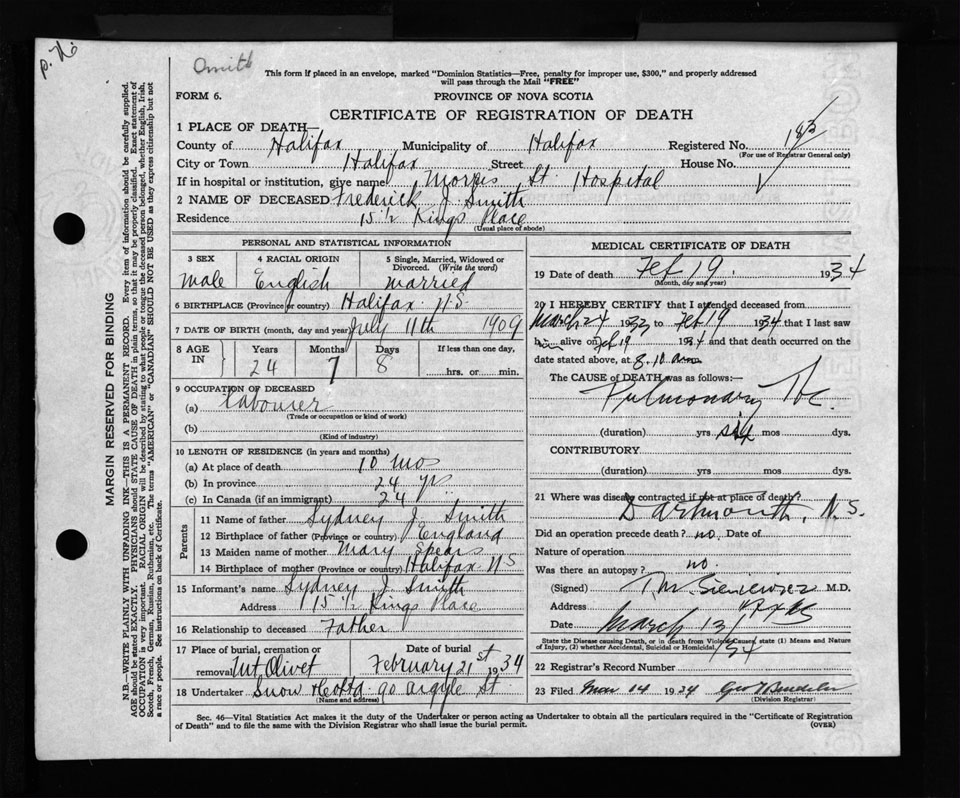 p. 76
Smith
This form if placed in an envelope, marked "Dominion Statistics—Free, penalty for improper use, $300," and properly addressed
will pass through the Mail "FREE"
FORM 6. PROVINCE OF NOVA SCOTIA
CERTIFICATE OF REGISTRATION OF DEATH
1 PLACE OF DEATH—
County of Halifax Municipality of Halifax Registered No. 183
(For use of Registrar General only)
City or Town Halifax Street House No.
If in hospital or institution, give name Morris St. Hospital
2 NAME OF DECEASED Frederick J. Smith
Residence 15½ Kings Place
(Usual place of abode)
PERSONAL AND STATISTICAL INFORMATION
3 SEX 4 RACIAL ORIGIN 5 Single, Married, Widowed or
Divorced. (Write the word)
male English married
6 BIRTHPLACE (Province or country) Halifax N S
7 DATE OF BIRTH (month, day and year) July 11th 1909
8 AGE IN Years Months Days If less than one day,
24 7 8 hrs. or min.
9 OCCUPATION OF DECEASED
(a) Labourer
(Trade or occupation or kind of work)
(b)
(Kind of industry)
10 LENGTH OF RESIDENCE (in years and months)
(a) At place of death 10 mos
(b) In province 24 yrs
(c) In Canada (if an immigrant) 24
Parents
11 Name of father Sydney J. Smith
12 Birthplace of father (Province or country) England
13 Maiden name of mother Mary Spears
14 Birthplace of mother (Province or country) Halifax N S
15 Informant's name Sydney J. Smith
Address 15½ Kings Place
16 Relationship to deceased Father
17 Place of burial, cremation or Date of burial
removal Mt Olivet February 21st 1934
18 Undertaker Snow & Co Ltd 90 Argyle St.
(Name and address)
MEDICAL CERTIFICATE OF DEATH
19 Date of death Feb 19. 1934
(Month, day and year)
20 I HEREBY CERTIFY that I attended deceased from
March 24 1933 to Feb 19 1934 that I last saw
him alive on Feb 19 1934 and that death occurred on the
date stated above, at 8.10 am
The CAUSE of DEATH was as follows:—
Pulmonary Tbc
(duration) yrs six mos dys.
CONTRIBUTORY
(duration) yrs mos dys.
21 Where was disease contracted if not at place of death?
Dartmouth, N.S.
Did an operation precede death? no. Date of
Nature of operation
Was there an autopsy? no.
(Signed) T.M. Sieniewicz M.D.
Address Hfx NS
Date March 13/34
State the Disease causing Death, or in death from Violent Causes, state (1) Means and Nature
of Injury, (2) whether Accidental, Suicidal or Homicidal.
22 Registrar's Record Number
23 Filed Mar 14 1934 Geo
(Division Registrar)
Sec. 46—Vital Statistics Act makes it the duty of the Undertaker or person acting as Undertaker to obtain all the particulars required in the "Certificate of Registration
of Death" and to file the same with the Division Registrar who shall issue the burial permit. (OVER)
MARGIN RESERVED FOR BINDING
N.B.—WRITE PLAINLY WITH UNFADING INK—THIS IS A PERMANENT RECORD. Every item of information should be carefully supplied.
AGE should be stated EXACTLY. PHYSICIANS should STATE CAUSE OF DEATH in plain terms, so that it may be properly classified. Exact statement of
OCCUPATION is very important. RACIAL ORIGIN will be described by stating to what people or tongue the deceased person belonged, whether English, Irish,
Scotch, French, German, Russian, Ruthenian, etc. The terms "AMERICAN" or "CANADIAN" SHOULD NOT BE USED as they express citizenship but not
a race or people. See instructions on back of Certificate.